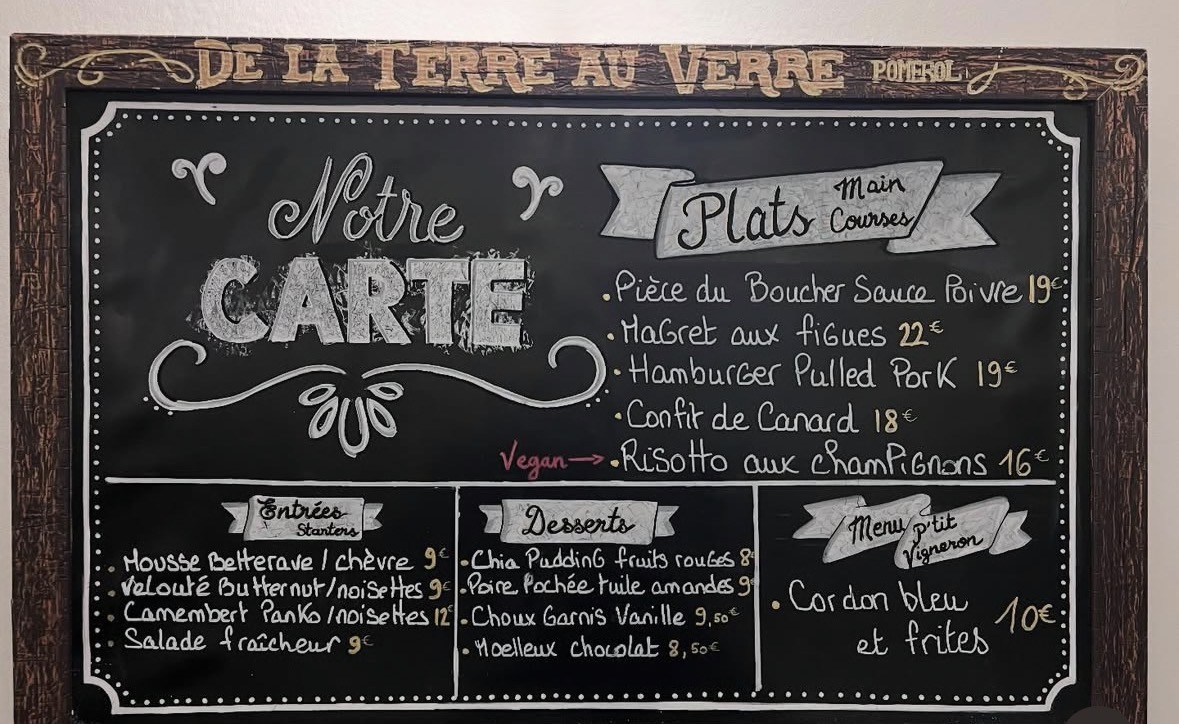 DE LA TERRE AU VERRE POMEROL
Notre
CARTE
Plats Main
Courses
.Pièce du Boucher Sauce Poivre 19€
.MaGret aux fiGues 22€
.HamburGer Pulled PorK 19€
.Confit de Canard 18€
Vegan→ .Risotto aux chamPiGnons 16€
Entrées
Starters
. Mousse Betterave / chèvre 9€
. Velouté Butternut/noisettes 9€
. Camembert Panko /noisettes 12€
. Salade fraîcheur 9€
Desserts
.Chia PuddinG fruits rouGes 8
.Poire Pochée tuile amandes 9
.Choux Garnis Vanille 9,50€
.Moelleux chocolat 8,50€
Menu p'tit
Vigneron
. Cordon bleu
et frites 10€